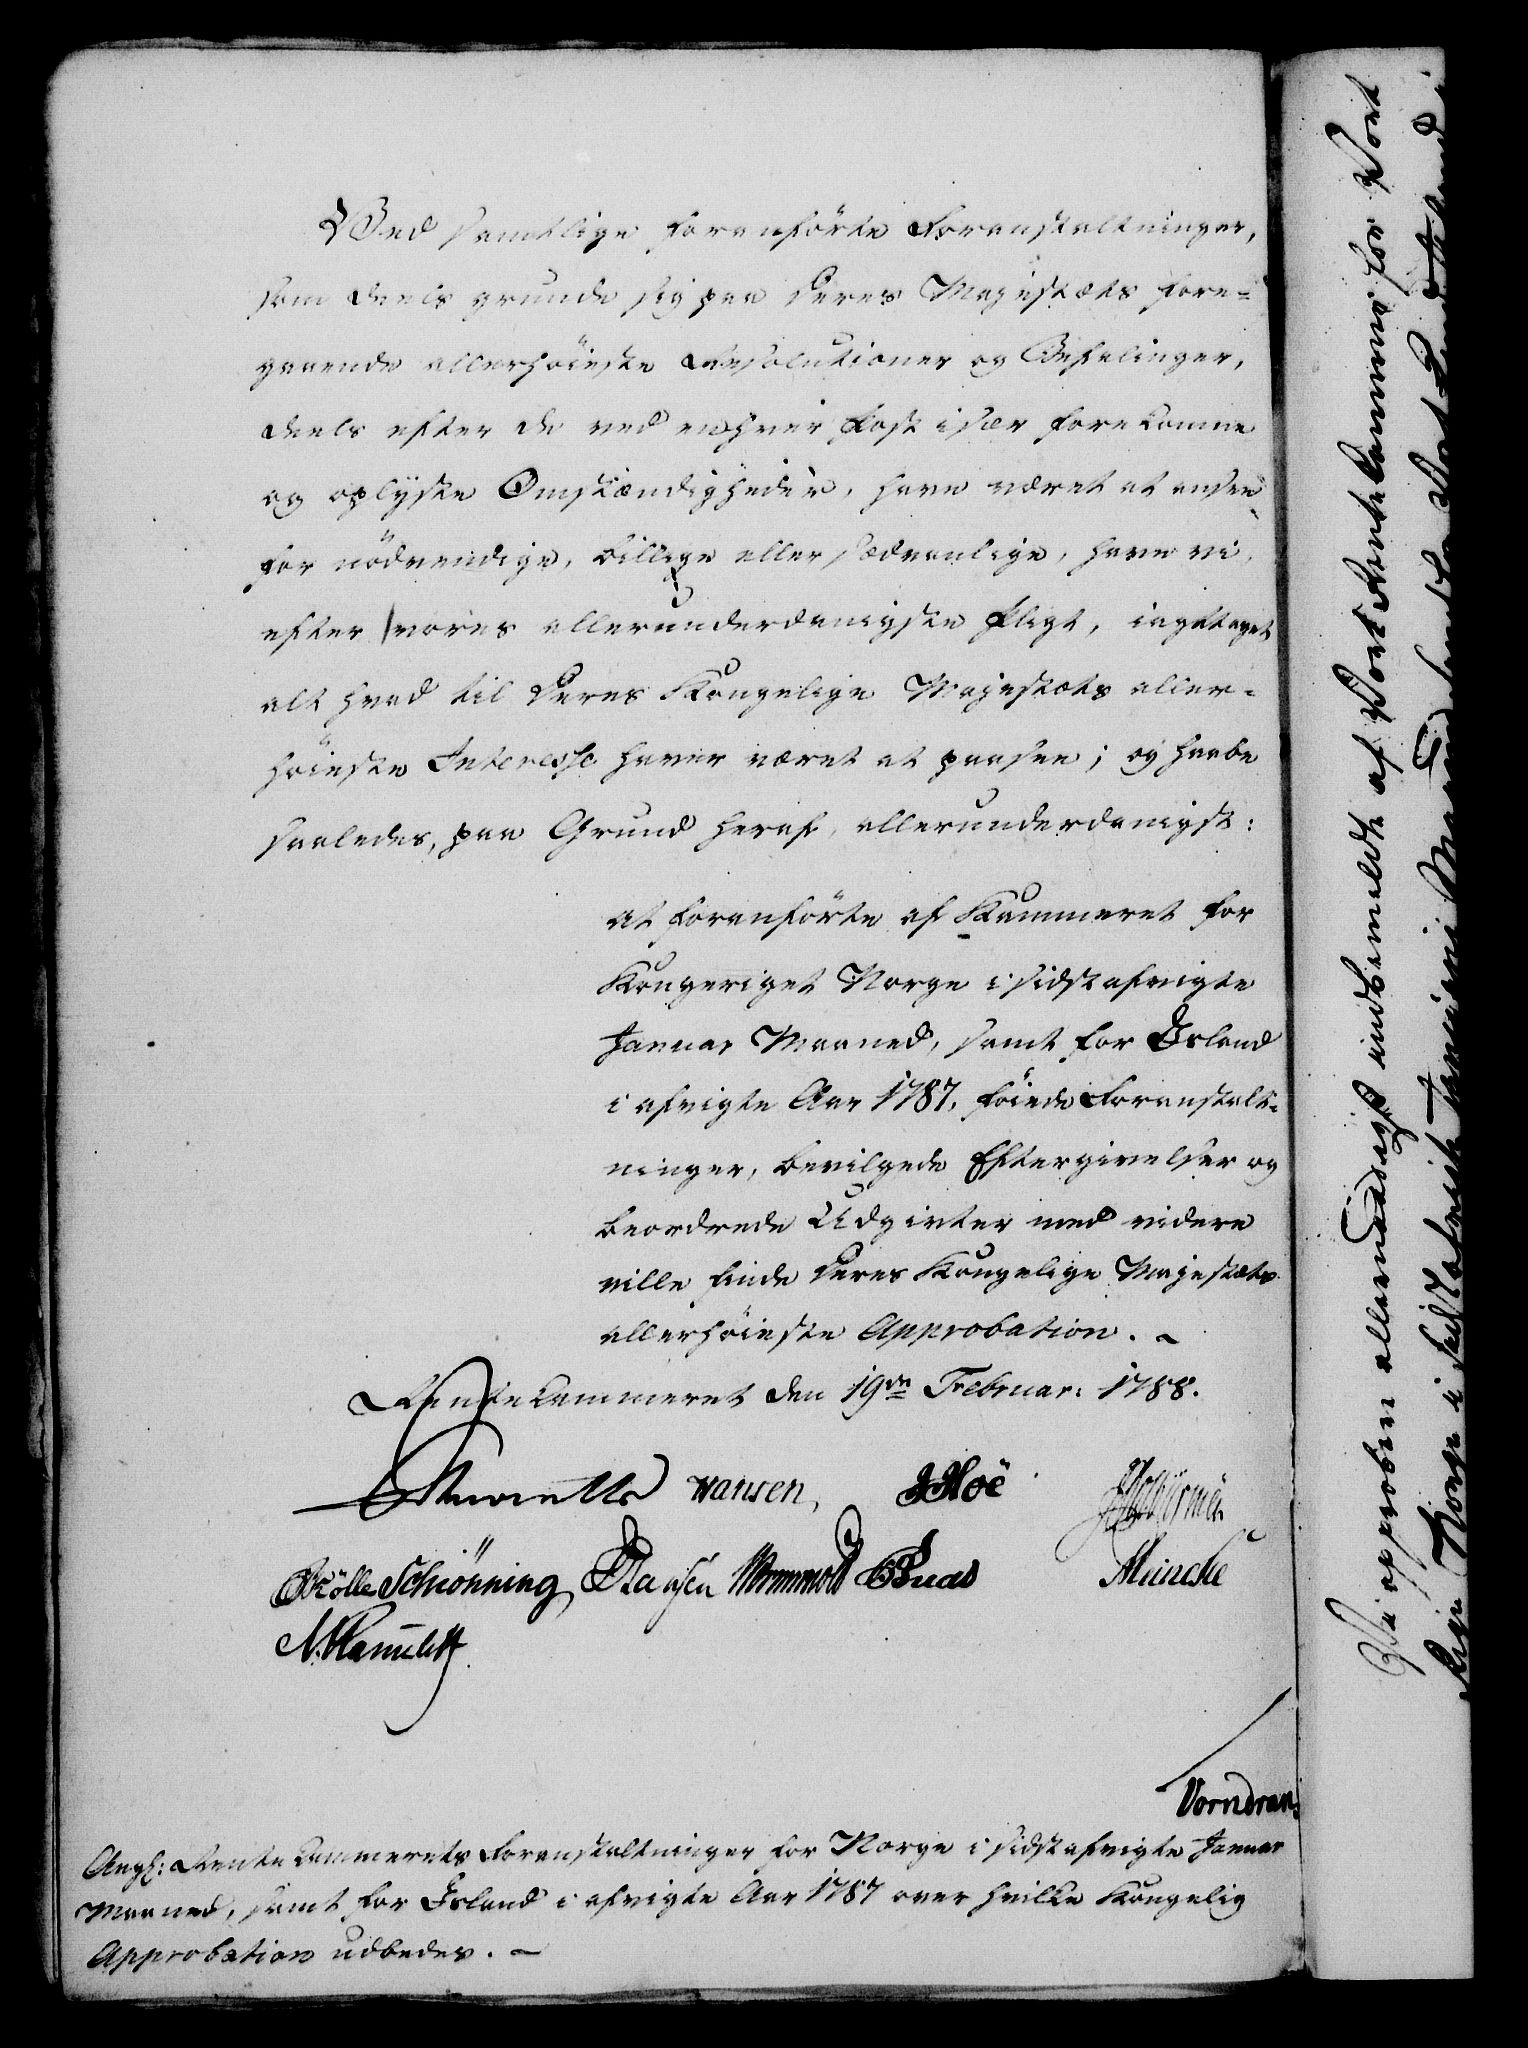 Ved samtlige foranførte Foranstaltninger,
som deels grunde sig paa Deres Majestæts fore-
gaaende allerhöieste Resolutioner og Befalinger,
deels efter de ved enhver Post især forekomne
og oplyste Omstændigheder, have været at ansee
for nödvendige, billige eller sædvanlige, have vi,
efter vores allerunderdanigste Pligt, iagttaget
alt hvad til Deres Kongelige Majestæts aller-
höieste Interesse haver været at paasee; og haabe
saaledes, paa Grund heraf, allerunderdanigst:
at foranförte af Kammeret for
Kongeriget Norge i sidstafvigte
Januar Maaned, samt for Island
i afvigte Aar 1787, föiede Foranstalt-
ninger, bevilgede Eftergivelser og
beordrede Udgivter med videre
ville finde Deres Kongelige Majestæts
allerhöieste Approbation. ~
Rentekammeret den 19de Februar: 1788.
Hansen, Hoë
Schiönning Hansen Wormskiold
Vorndran.
Angl: Rentekammerets Foranstaltninger for Norge i sidstafvigte Januar
Maaned, samt for Island i afvigte Aar 1787 over hvilke Kongelig
Approbation udbedes. ~
Vi approbere allernaadigst indbemeldte af Vort Rentekammer for Vort
Rige Norge i sidstafvigte Januarii Maaned